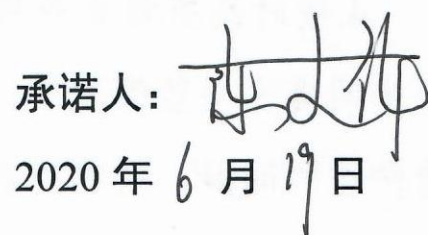 承诺人：
2020 年 6 月 19 日